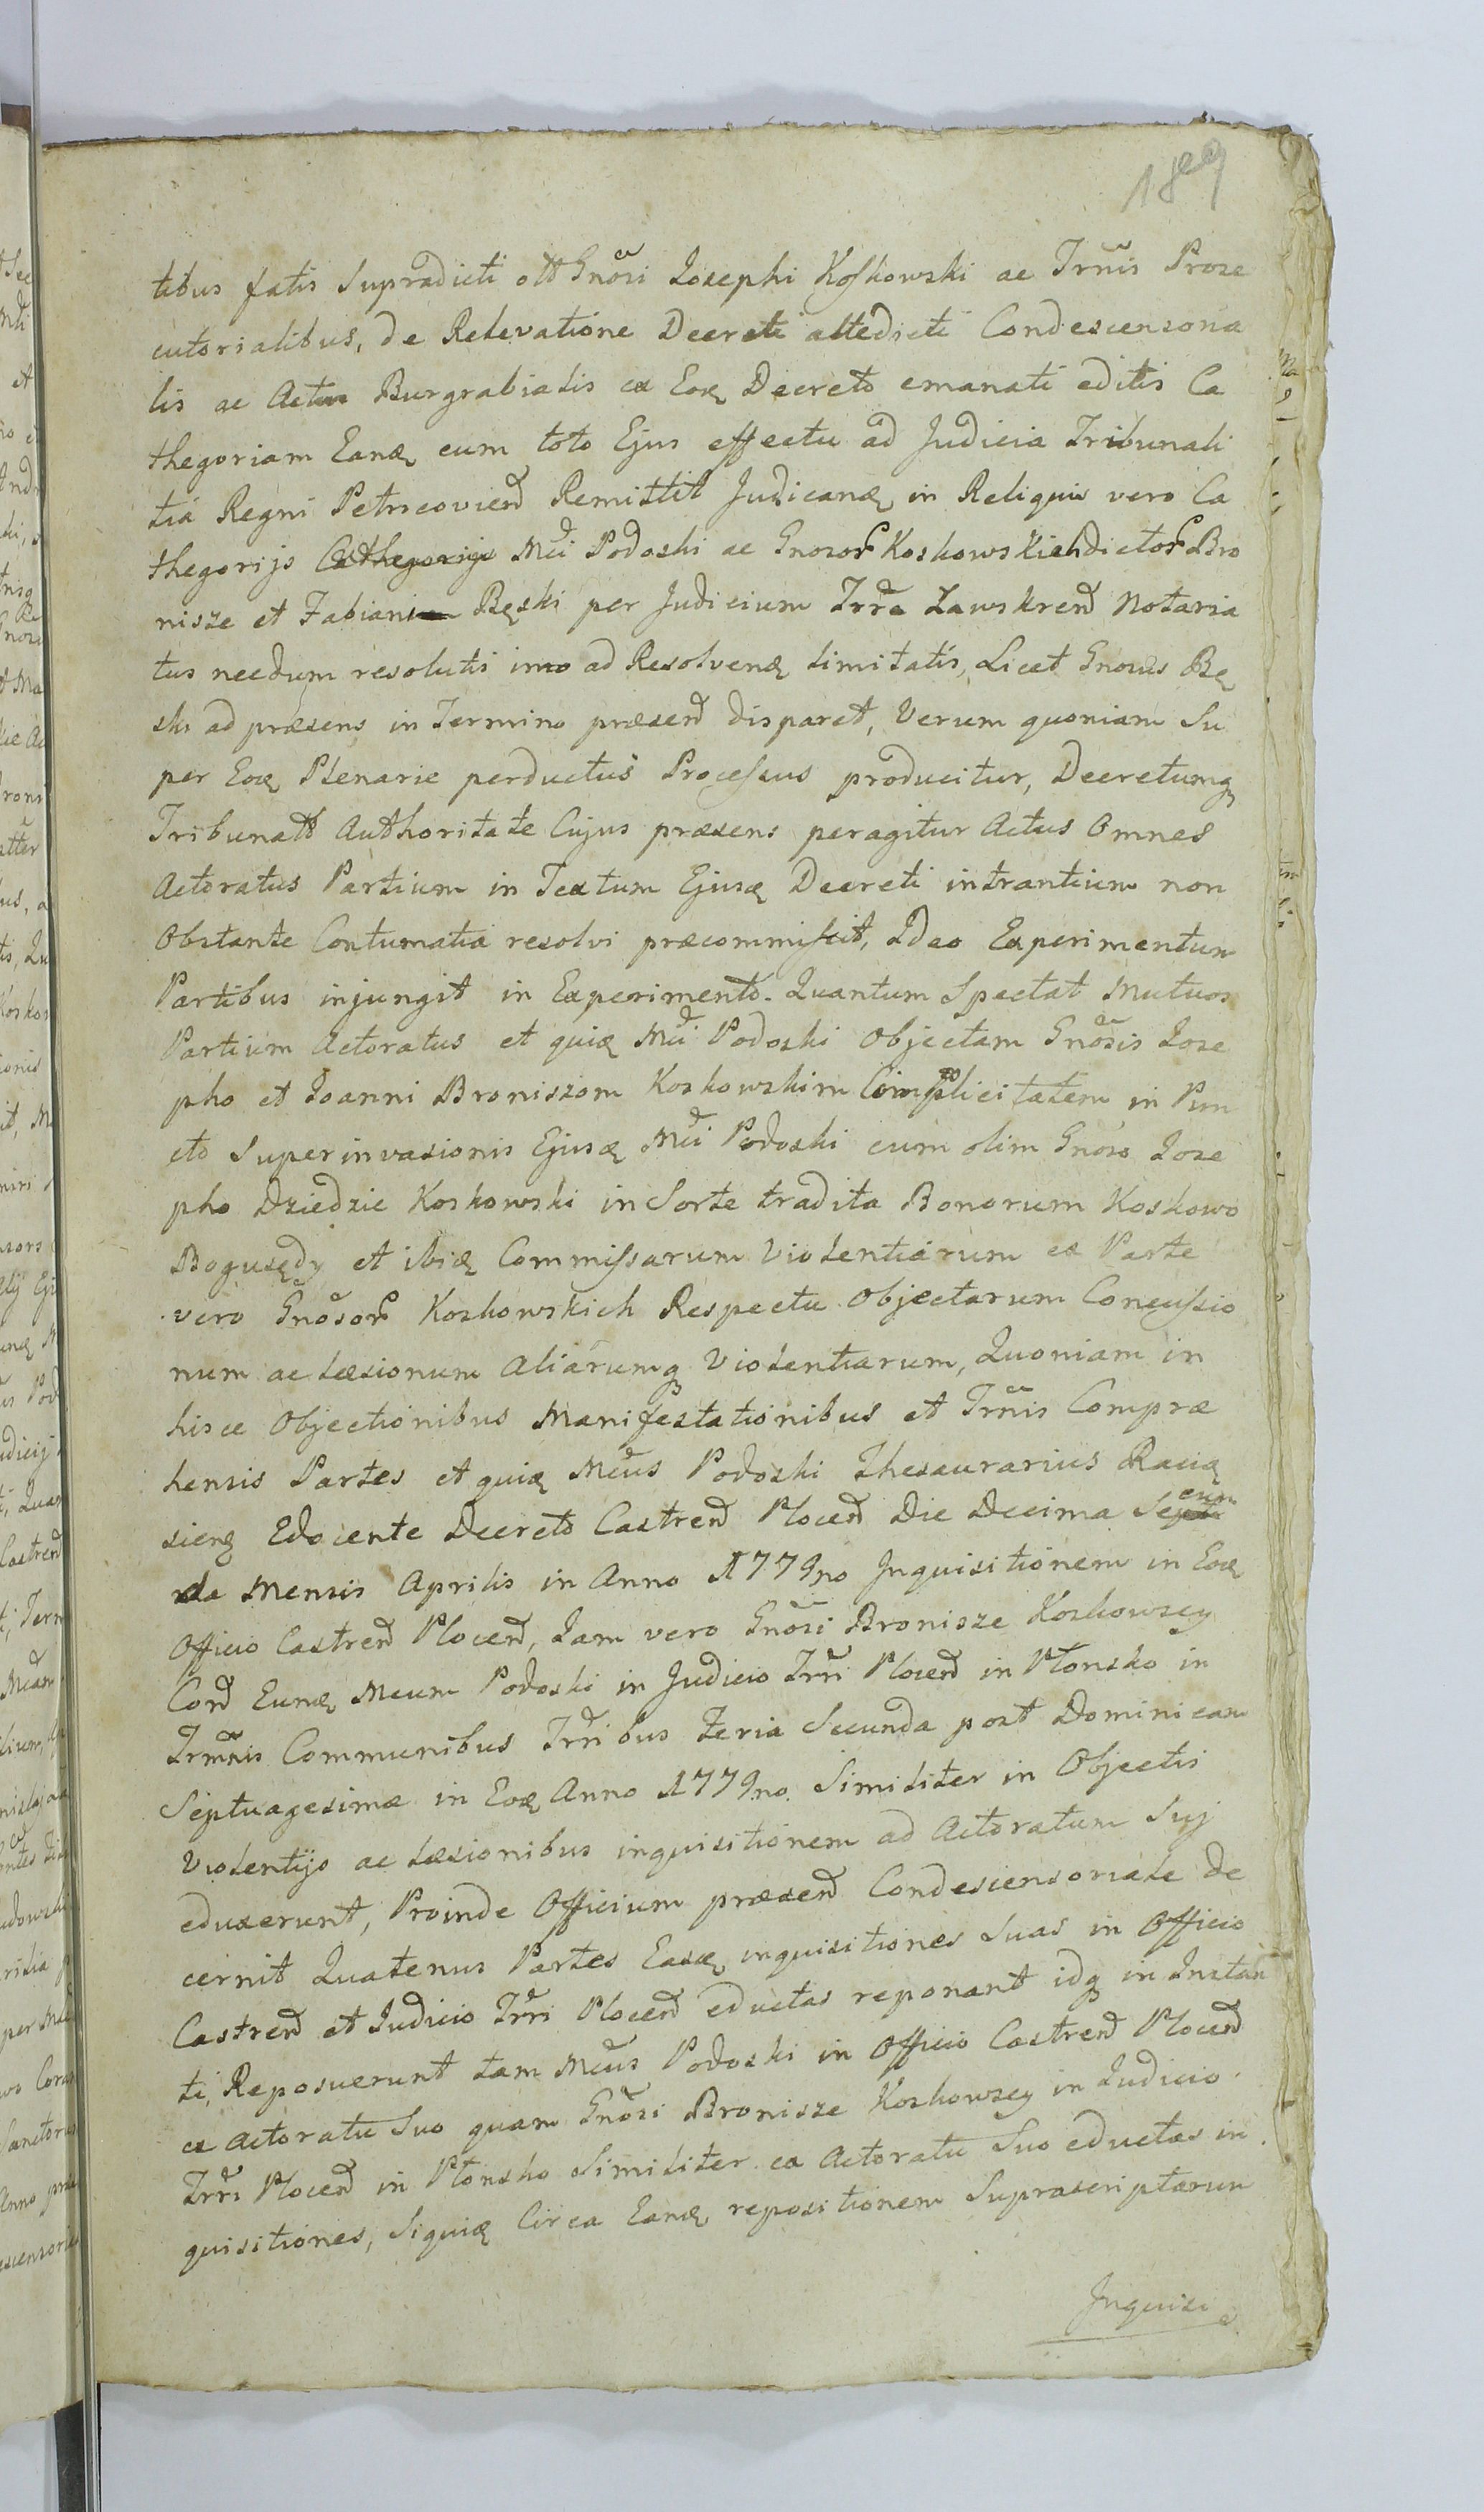 189
tibus fatis Supradicti ott Gnõsi Josephi Koskowski ac Trm̃is Prose
cutorialibus, de Relevatione Decreti attedicti Condescensoria
lis ac Actus Burgrabialis ex Eoq Decreto emanati editis Ca
thegoriam Eanq cum toto Ejus effectu ad Judicia Tribunali
tia Regni Petricovien̄ Remittit Judicanq in Reliquis vero Ca
thegorijs Cathegorijs Mc̃i Podoski ac Gnosor̃ Koskowskich dictor̃ Bro
nisze et Fabiani Bęski per Judicium Trr̃e Zawskren̄ Notaria
tus necdum resolutis imo ad Resolvenq limitatis, Licet Gnosus Bę
ski ad præsens in Termino præsen̄ disparet, Verum quoniam Su
per Eoq Plenarie perductus Processus producitur, Decretumq
Tribunatt Authoritate Cujus præsens peragitur Actus Omnes
Actoratus Partium in Textum Ejusq Decreti intrantium non
Obstante Contumatia resolvi præcommissit, Ideo Experimentum
Partibus injungit in Experimento. Quantum Spectat Mutuos
Partium Actoratus et quiq Mc̃i Podoski Objectam Gnõsis Jose
pho et Joanni Broniszom Koskowskim Complicitatem in Pun
cto Superinvasionis Ejusq Mc̃i Podoski cum olim Gnõso Jose
pho Dziedzic Koskowski in Sorte tradita Bonorum Koskowo
Bogusędy et ibiq Commissarum Violentiarum ex Parte
vero Gnõsor̃ Koskowskich Respectu Objectarum Concussio
num ac Læsionum Aliarumq Violentiarum, Quoniam in
hisce Objectionibus Manifestationibus et Trm̃is Compræ
hensis Partes et quiq Mc̃us Podoski Thesaurarius Raciq
sienq Edocente Decreto Castren̄ Plocen̄ Die Decima Secun
da Mensis Aprilis in Anno 1779no Inquisitionem in Eoq
Officio Castren̄ Plocen̄, Jam vero Gnõsi Bronisze Koskowscy
Cor̄ Eunq Mcum Podoski in Judicio Trr̃i Plocen̄ in Płonsko in
Trm̃nis Communibus Trr̃ibus Feria Secunda post Dominicam
Septuagesimæ in Eoq Anno 1779no Similiter in Objectis
Violentijs ac Læsionibus inquisitionem ad Actoratum Suj
eduxerunt, Proinde Officium præsen̄ Condescensoriale De
cernit Quatenus Partes Easq inquisitiones Suas in Officio
Castren̄ et Judicio Trr̃i Plocen̄ eductas reponant idq in Instan
ti, Reposuerunt tam Mc̃us Podoski in Officio Castren̄ Plocen̄
ex Actoratu Suo quam Gnõsi Bronisze Koskowscy in Judicio
Trr̃i Plocen̄ in Płonsko Similiter ex Actoratu Suo eductas in
quisitiones, Siquiq Circa Eanq repositionem Suprascriptarum
Inquisi